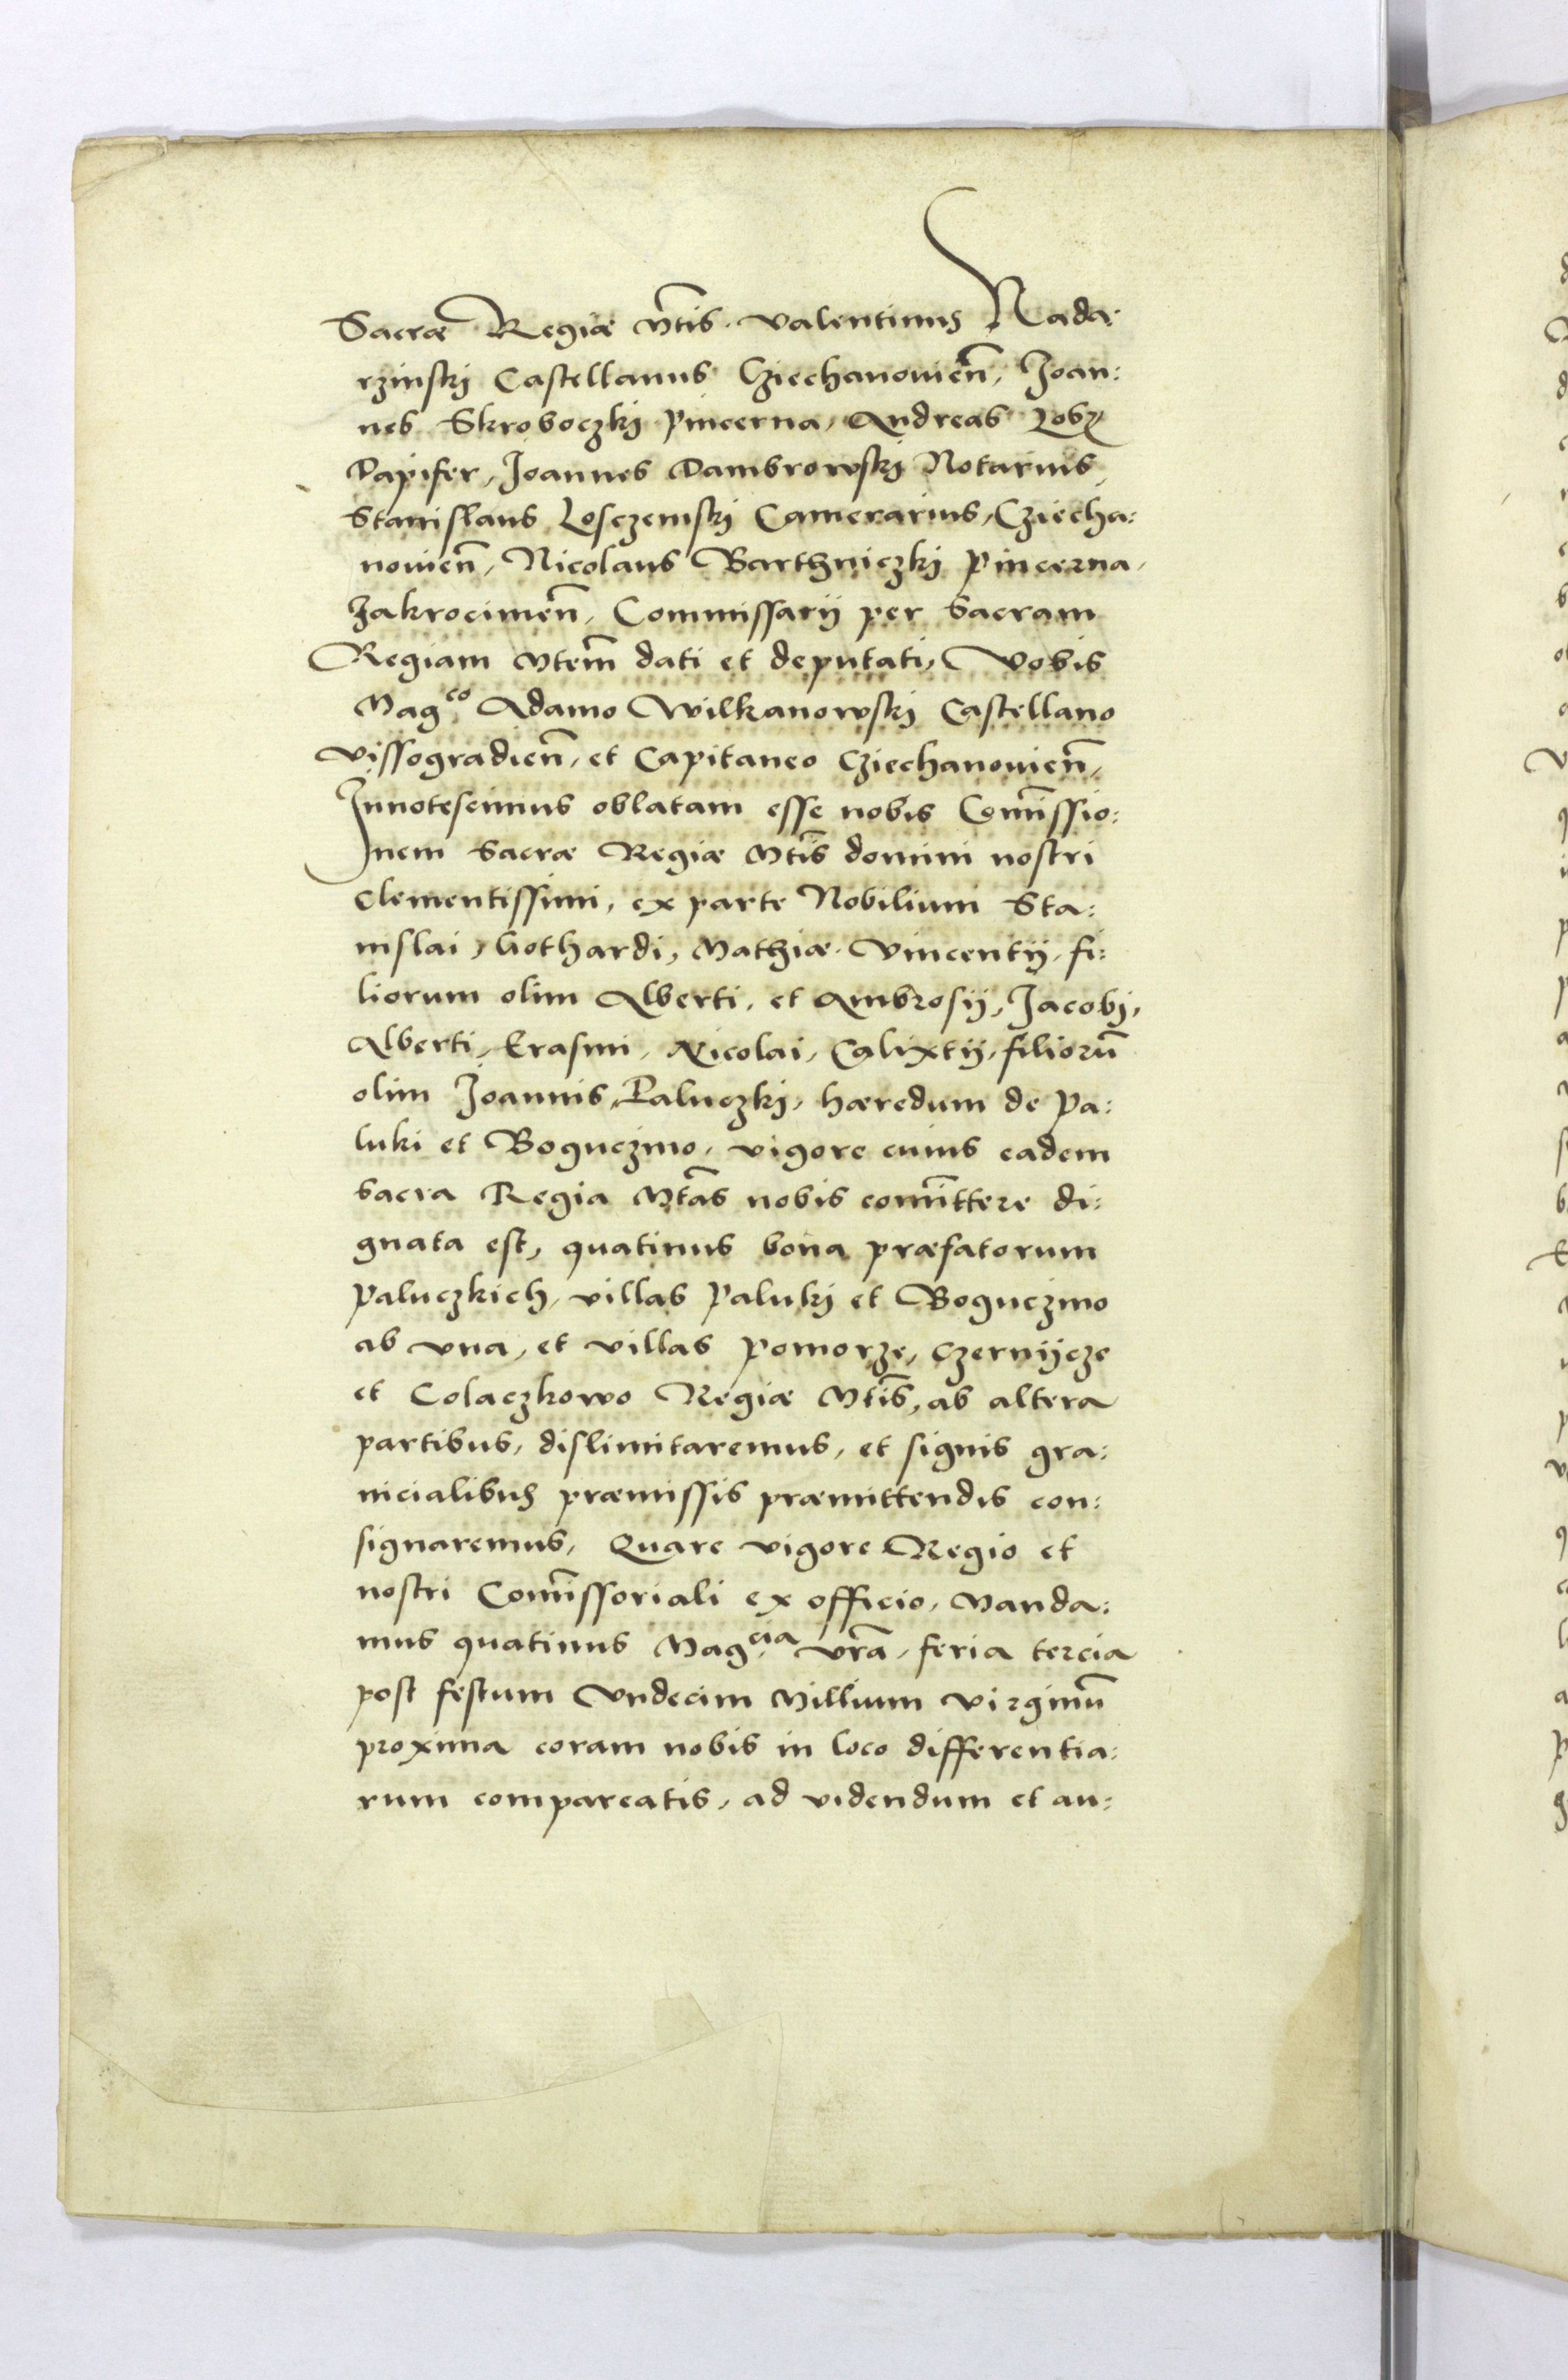 Sacræ Regiæ Mtis. Valentinus Nada:
rzinskj Castellanus Cziechanouien̄, Joan:
nes Skroboczkj Pincerna, Andreas
Dapifer, Joannes Dambrowskj Notarius,
Stanislaus Losczemskj Camerarius, Cziecha:
nouien̄, Nicolaus Barthniczkj Pincerna,
Zakrocimen̄, Commissarij per Sacram
Regiam Mtem̄ dati et deputati, Vobis
Mag.co Adamo Wilkanowskj Castellano
Vissogradien̄, et Capitaneo Cziechanouien̄,
Innotescimus oblatam esse nobis Com̄issio:
nem Sacræ Regiæ Mtis domini nostri
Clementissimi, ex parte Nobilium Sta:
nislai, Gothardi, Mathiæ. Vincentij, fi:
liorum olim Alberti, et Ambrosij, Jacobj,
Alberti, Erasmi, Nicolai, Calixtij, filiorū
olim Joannis, Paluczkj, hæredum de Pa:
lukj et Boguczino, vigore cuius eadem
Sacra Regia Mtas nobis com̄ittere di:
gnata est, quatinus bona præfatorum
Paluczkich, villas Palukj et Boguczino
ab vna, et villas Pomorze, Czernijcze
et Colaczkowo Regiæ Mtis, ab altera
partibus, dislimitaremus, et signis gra:
nicialibus præmissis præmittendis con:
signaremus, Quare vigore Regio et
nostri Com̄issoriali ex officio, Manda:
mus quatinus Mag.cia vr̄a, feria tercia
post festum Vndecim Millium Virginū
proxima coram nobis in loco differentia:
rum compareatis, ad videndum et au: